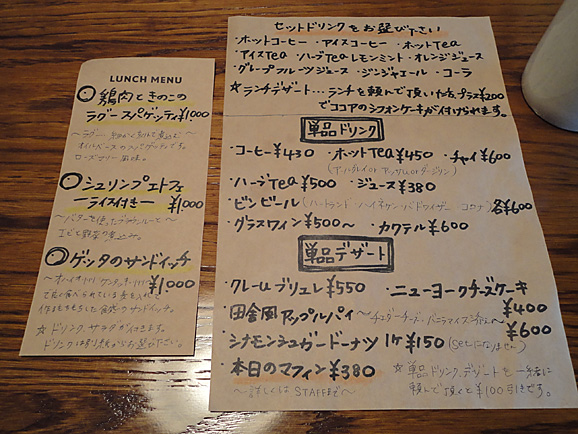 LUNCH MENU
鶏肉ときのこの
ラグースパゲッティ ¥1000
オイルベースのスパゲッティです。
ローズマリー風味。
シュリンプエトフェ
ーライス付きー ¥1000
〜バターを使ったブラウンルーと〜
エビと野菜の煮込み。
ゲッタのサンドイッチ
¥1000
☆ドリンク、サラダが付きます。
ドリンクは右の紙からお選び下さい。
セットドリンクをお選び下さい
・ホットコーヒー ・アイスコーヒー ・ホットTea
・アイスTea ・ハーブTea レモンミント ・オレンジジュース
・グレープフルーツジュース ・ジンジャエール ・コーラ
☆ランチデザート…ランチを頼んで頂いた方、プラス¥200
でココアのシフォンケーキが付けられます。
単品ドリンク
・コーヒー ¥430 ・ホットTea ¥450 ・チャイ ¥600
(アールグレイ or アッサム or ダージリン)
・ハーブTea ¥500 ・ジュース ¥380
・ビンビール (ハートランド ハイネケン バドワイザー コロナ) 各¥600
・グラスワイン ¥500〜 ・カクテル ¥600
単品デザート
・クレームブリュレ ¥550 ・ニューヨークチーズケーキ
¥400
・田舎風アップルパイ 〜チェダーチーズ、バニラアイス添え〜 ¥600
・シナモンシュガードーナツ 1ケ ¥150 (setになりません)
・本日のマフィン ¥380
〜詳しくはSTAFFまで〜
☆単品ドリンク、デザートを一緒に
頼んで頂くと¥100引きです。